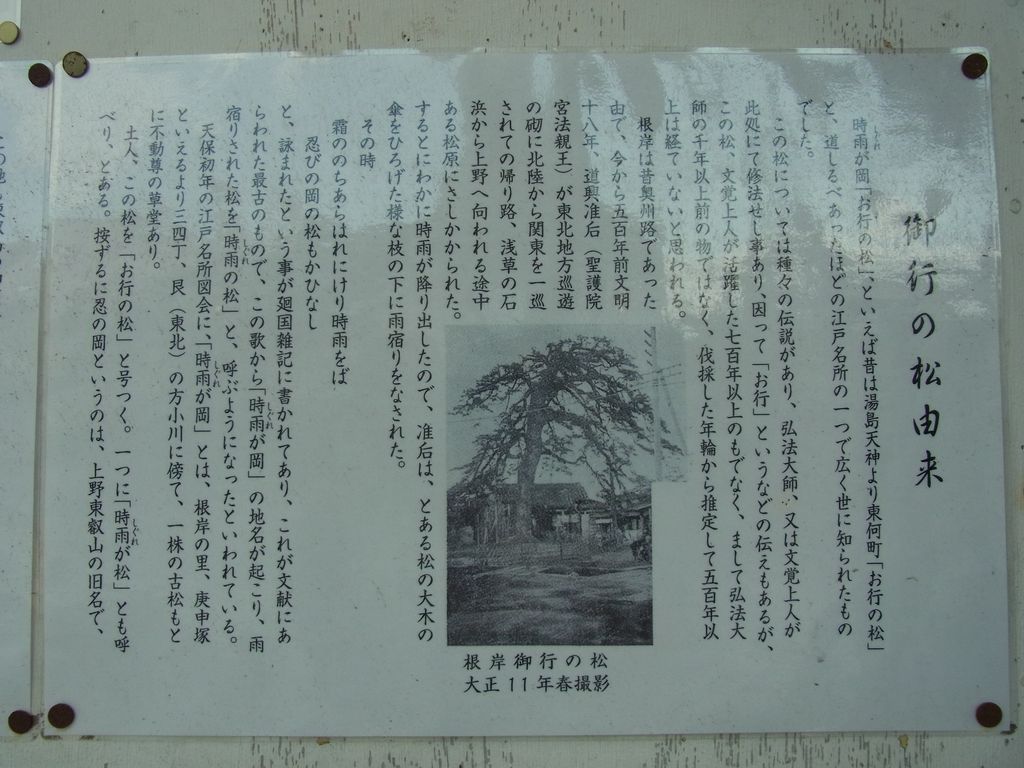 御行の松由来
時雨が岡「お行の松」、といえば昔は湯島天神より東何町「お行の松」
と、道しるべあったほどの江戸名所の一つで広く世に知られたもの
でした。
この松については種々の伝説があり、弘法大師、又は文覚上人が
此処にて修法せし事あり、因って「お行」というなどの伝えもあるが、
この松、文覚上人が活躍した七百年以上のもでなく、まして弘法大
師の千年以上前の物ではなく、伐採した年輪から推定して五百年以
上は経ていないと思われる。
根岸は昔奥州路であった
由で、今から五百年前文明
十八年、道興准后(聖護院
宮法親王)が東北地方巡遊
の砌に北陸から関東を一巡
されての帰り路、浅草の石
浜から上野へ向われる途中
ある松原にさしかかられた。
するとにわかに時雨が降り出したので、准后は、とある松の大木の
傘をひろげた様な枝の下に雨宿りをなされた。
その時
霜ののちあらはれにけり時雨をば
忍びの岡の松もかひなし
と、詠まれたという事が廻国雑記に書かれてあり、これが文献にあ
らわれた最古のもので、この歌から「時雨が岡」の地名が起こり、雨
宿りされた松を「時雨の松」と、呼ぶようになったといわれている。
天保初年の江戸名所図会に、「時雨が岡」とは、根岸の里、庚申塚
といえるより三四丁、艮(東北)の方小川に傍て、一株の古松もと
に不動尊の草堂あり。
土人、この松を「お行の松」と号つく。一つに「時雨が松」とも呼
べり、とある。按ずるに忍の岡というのは、上野東叡山の旧名で、
根岸御行の松
大正11年春撮影